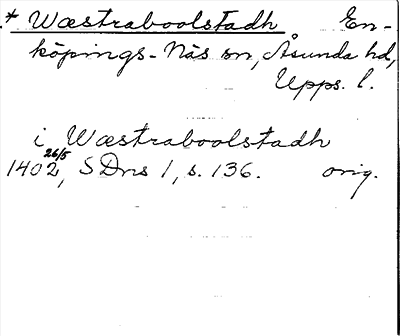 * Wæstraboolstadh En-
köpings-Näs sn, Åsunda hd,
Upps. l.
i Wæstraboolstadh
1402 26/5, SDns 1, s. 136. orig.